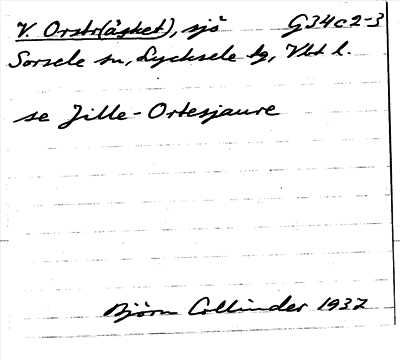 V. Orstr(äsket), sjö G34c2-3
Sorsele sn, Lycksele lg, Vbt l.
se Jille-Ortesjaure
Björn Collinder 1937